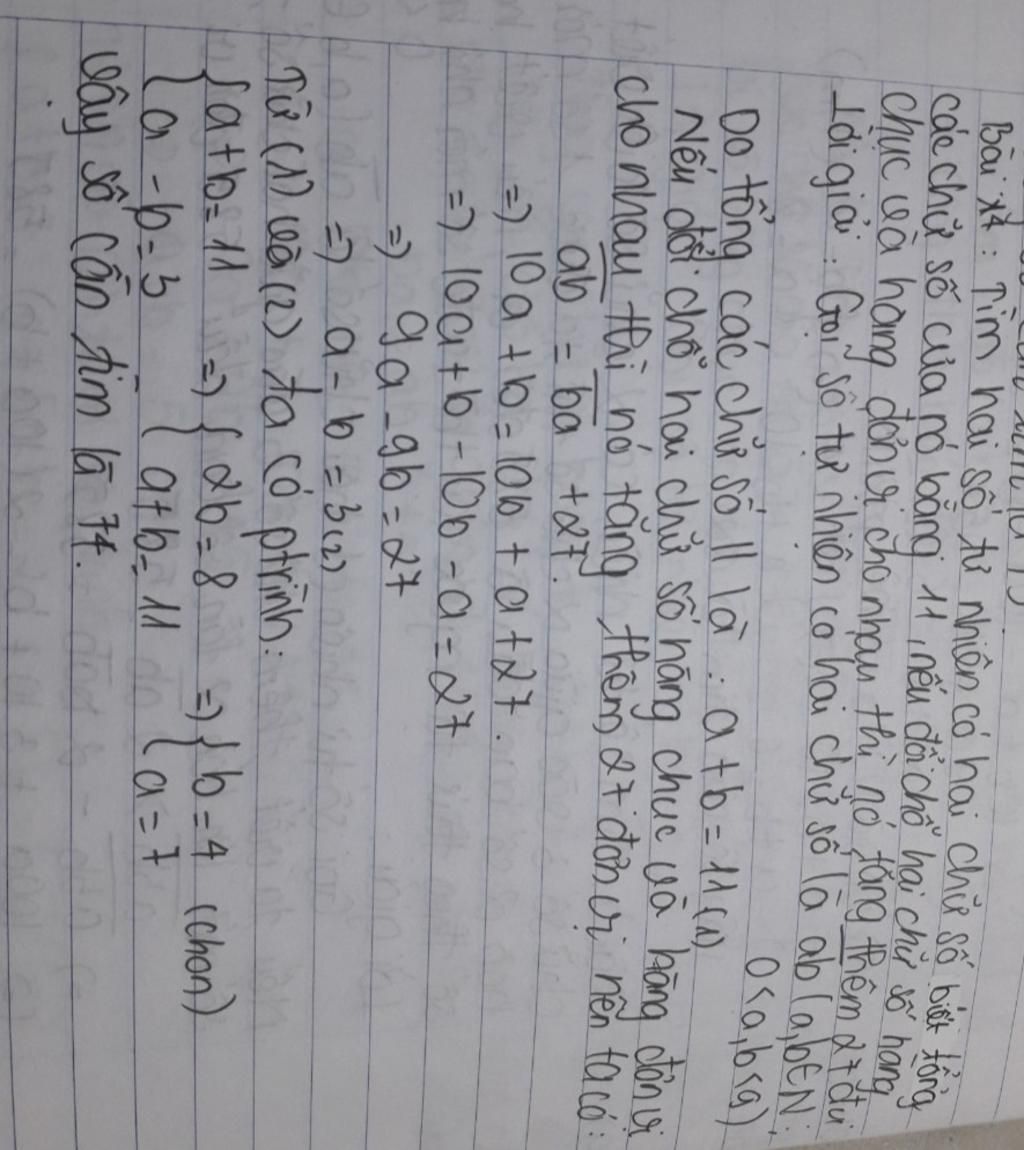 Bài 74: Tìm hai số tự nhiên có hai chữ số biết tổng
các chữ số của nó bằng 11, nếu đổi chỗ hai chữ số hàng
chục và hàng đơn vị cho nhau thì nó tăng thêm 27 đvị
Lời giải: Gọi số tự nhiên có hai chữ số là ab (a,b∈N;
0<a,b<9)
Do tổng các chữ số 11 là: a+b=11 (1)
Nếu đổi chỗ hai chữ số hàng chục và hàng đơn vị
cho nhau thì nó tăng thêm 27 đơn vị nên ta có:
ab = ba +27.
=> 10a+b=10b+a+27.
=> 10a+b-10b-a=27
=> 9a-9b=27
=> a-b=3 (2)
Từ (1) và (2) ta có ptrình:
{a+b=11 => {2b=8 => {b=4 (chọn)
{a-b=3 {a+b=11 {a=7
Vậy số cần tìm là 74.